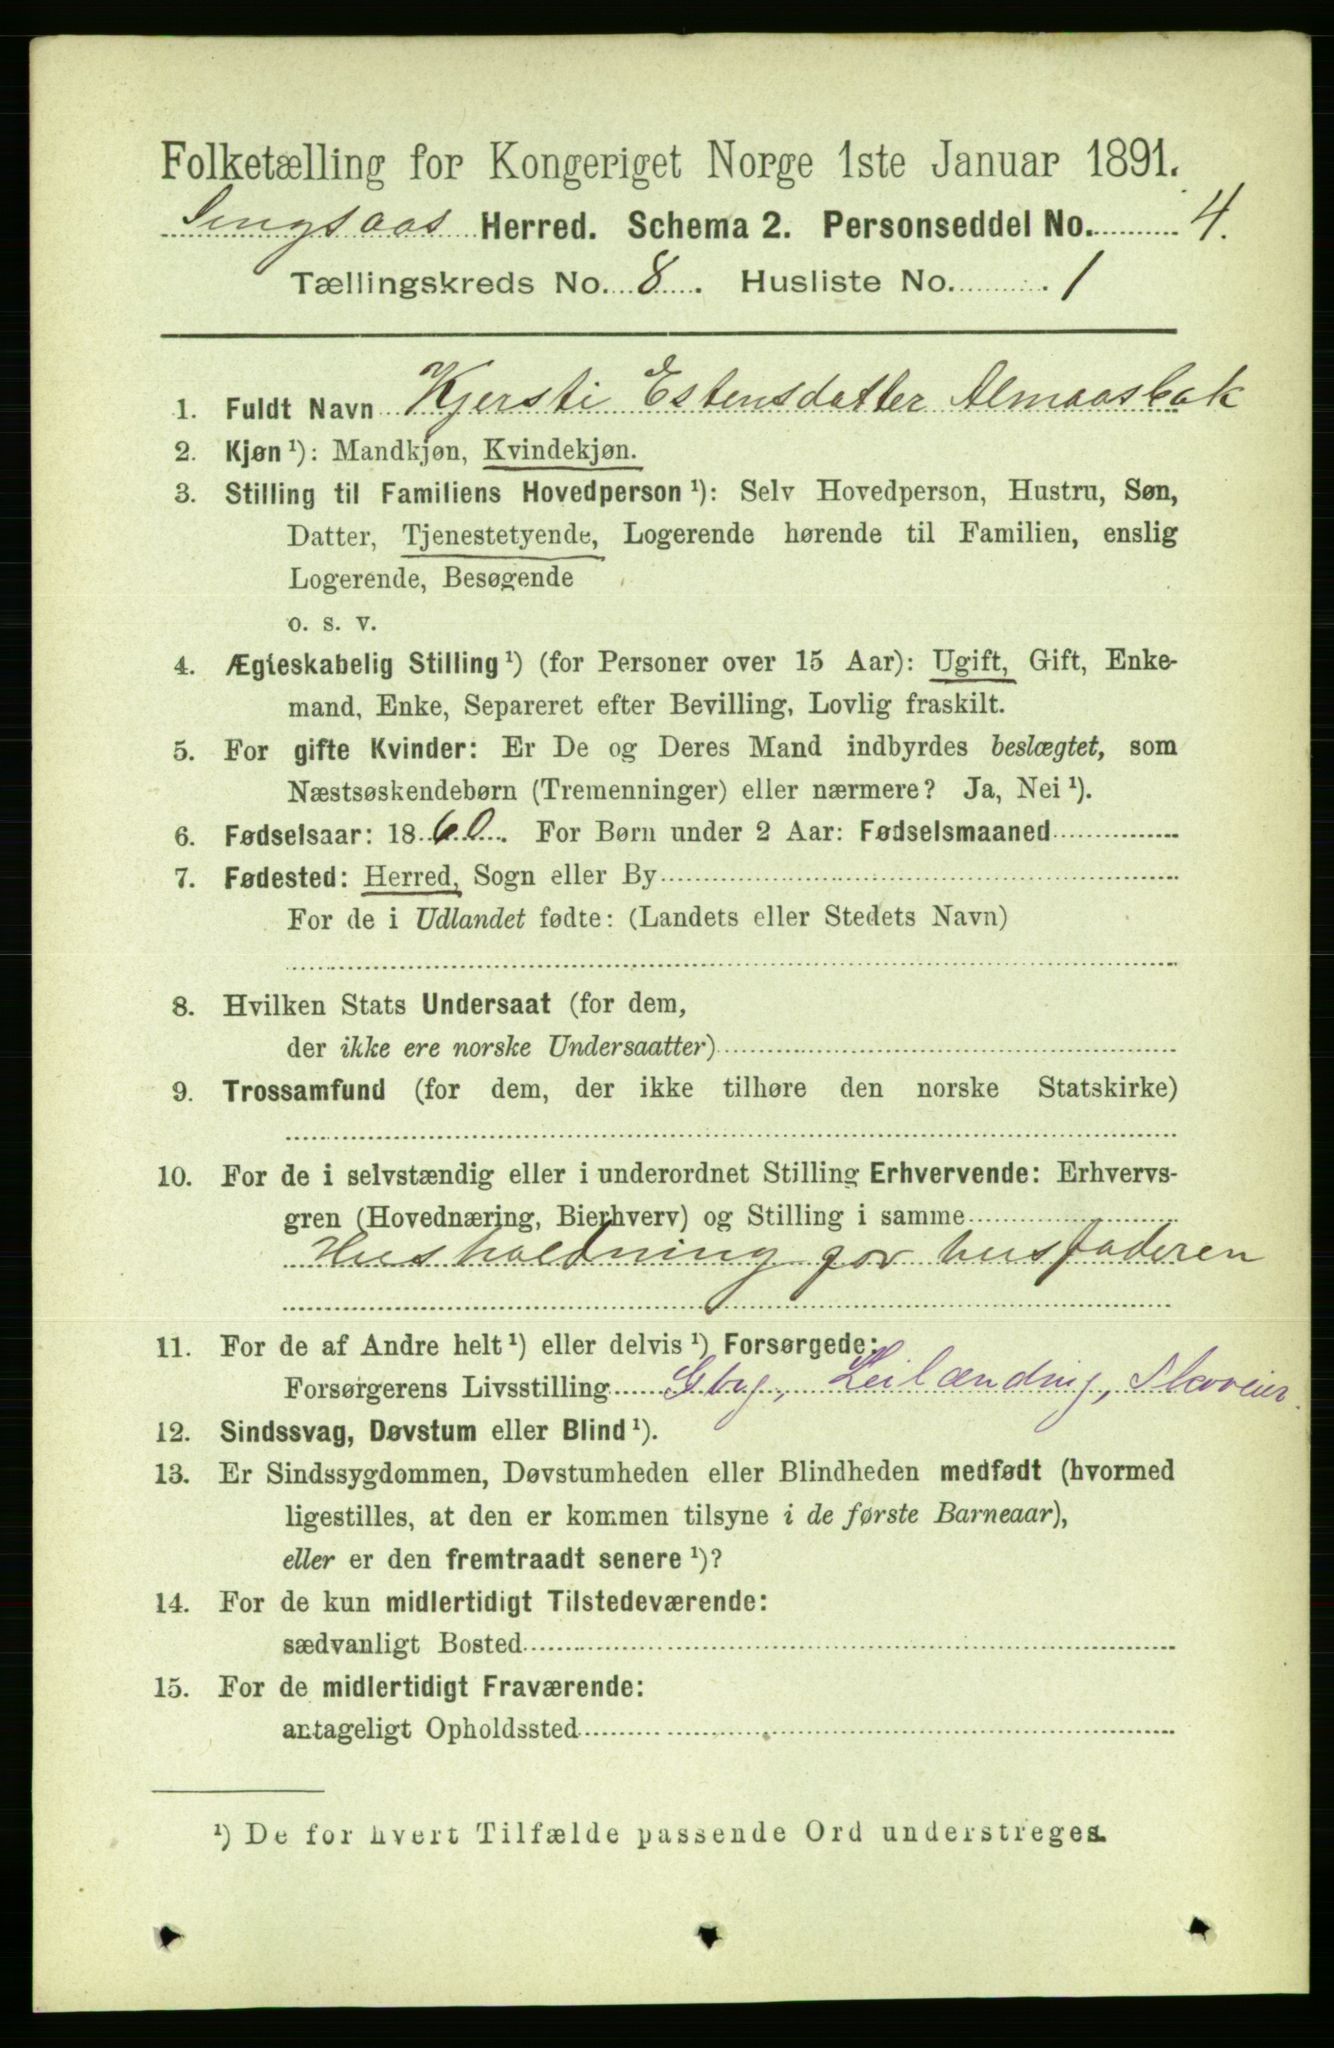 Folketælling for Kongeriget Norge 1ste Januar 1891.
Singsaas Herred. Schema 2. Personseddel No. 4.
Tællingskreds No. 8. Husliste No. 1
1. Fuldt Navn Kjersti Estensdatter Almaasbak
2. Kjøn ¹): Mandkjøn, Kvindekjøn.
3. Stilling til Familiens Hovedperson ¹): Selv Hovedperson, Hustru, Søn,
Datter, Tjenestetyende, Logerende hørende til Familien, enslig
Logerende, Besøgende
o. s. v.
4. Ægteskabelig Stilling ¹) (for Personer over 15 Aar): Ugift, Gift, Enke-
mand, Enke, Separeret efter Bevilling, Lovlig fraskilt.
5. For gifte Kvinder: Er De og Deres Mand indbyrdes beslægtet, som
Næstsøskendebørn (Tremenninger) eller nærmere? Ja, Nei ¹).
6. Fødselsaar: 1860. For Børn under 2 Aar: Fødselsmaaned
7. Fødested: Herred, Sogn eller By
For de i Udlandet fødte: (Landets eller Stedets Navn)
8. Hvilken Stats Undersaat (for dem,
der ikke ere norske Undersaatter)
9. Trossamfund (for dem, der ikke tilhøre den norske Statskirke)
10. For de i selvstændig eller i underordnet Stilling Erhvervende: Erhvervs-
gren (Hovednæring, Bierhverv) og Stilling i samme
Husholdning for husfaderen
11. For de af Andre helt ¹) eller delvis ¹) Forsørgede:
Forsørgerens Livsstilling Gbrg, Leilænding, Skoveier.
12. Sindssvag, Døvstum eller Blind ¹).
13. Er Sindssygdommen, Døvstumheden eller Blindheden medfødt (hvormed
ligestilles, at den er kommen tilsyne i de første Barneaar),
eller er den fremtraadt senere ¹)?
14. For de kun midlertidigt Tilstedeværende:
sædvanligt Bosted
15. For de midlertidigt Fraværende:
antageligt Opholdssted
¹) De for hvert Tilfælde passende Ord understreges.